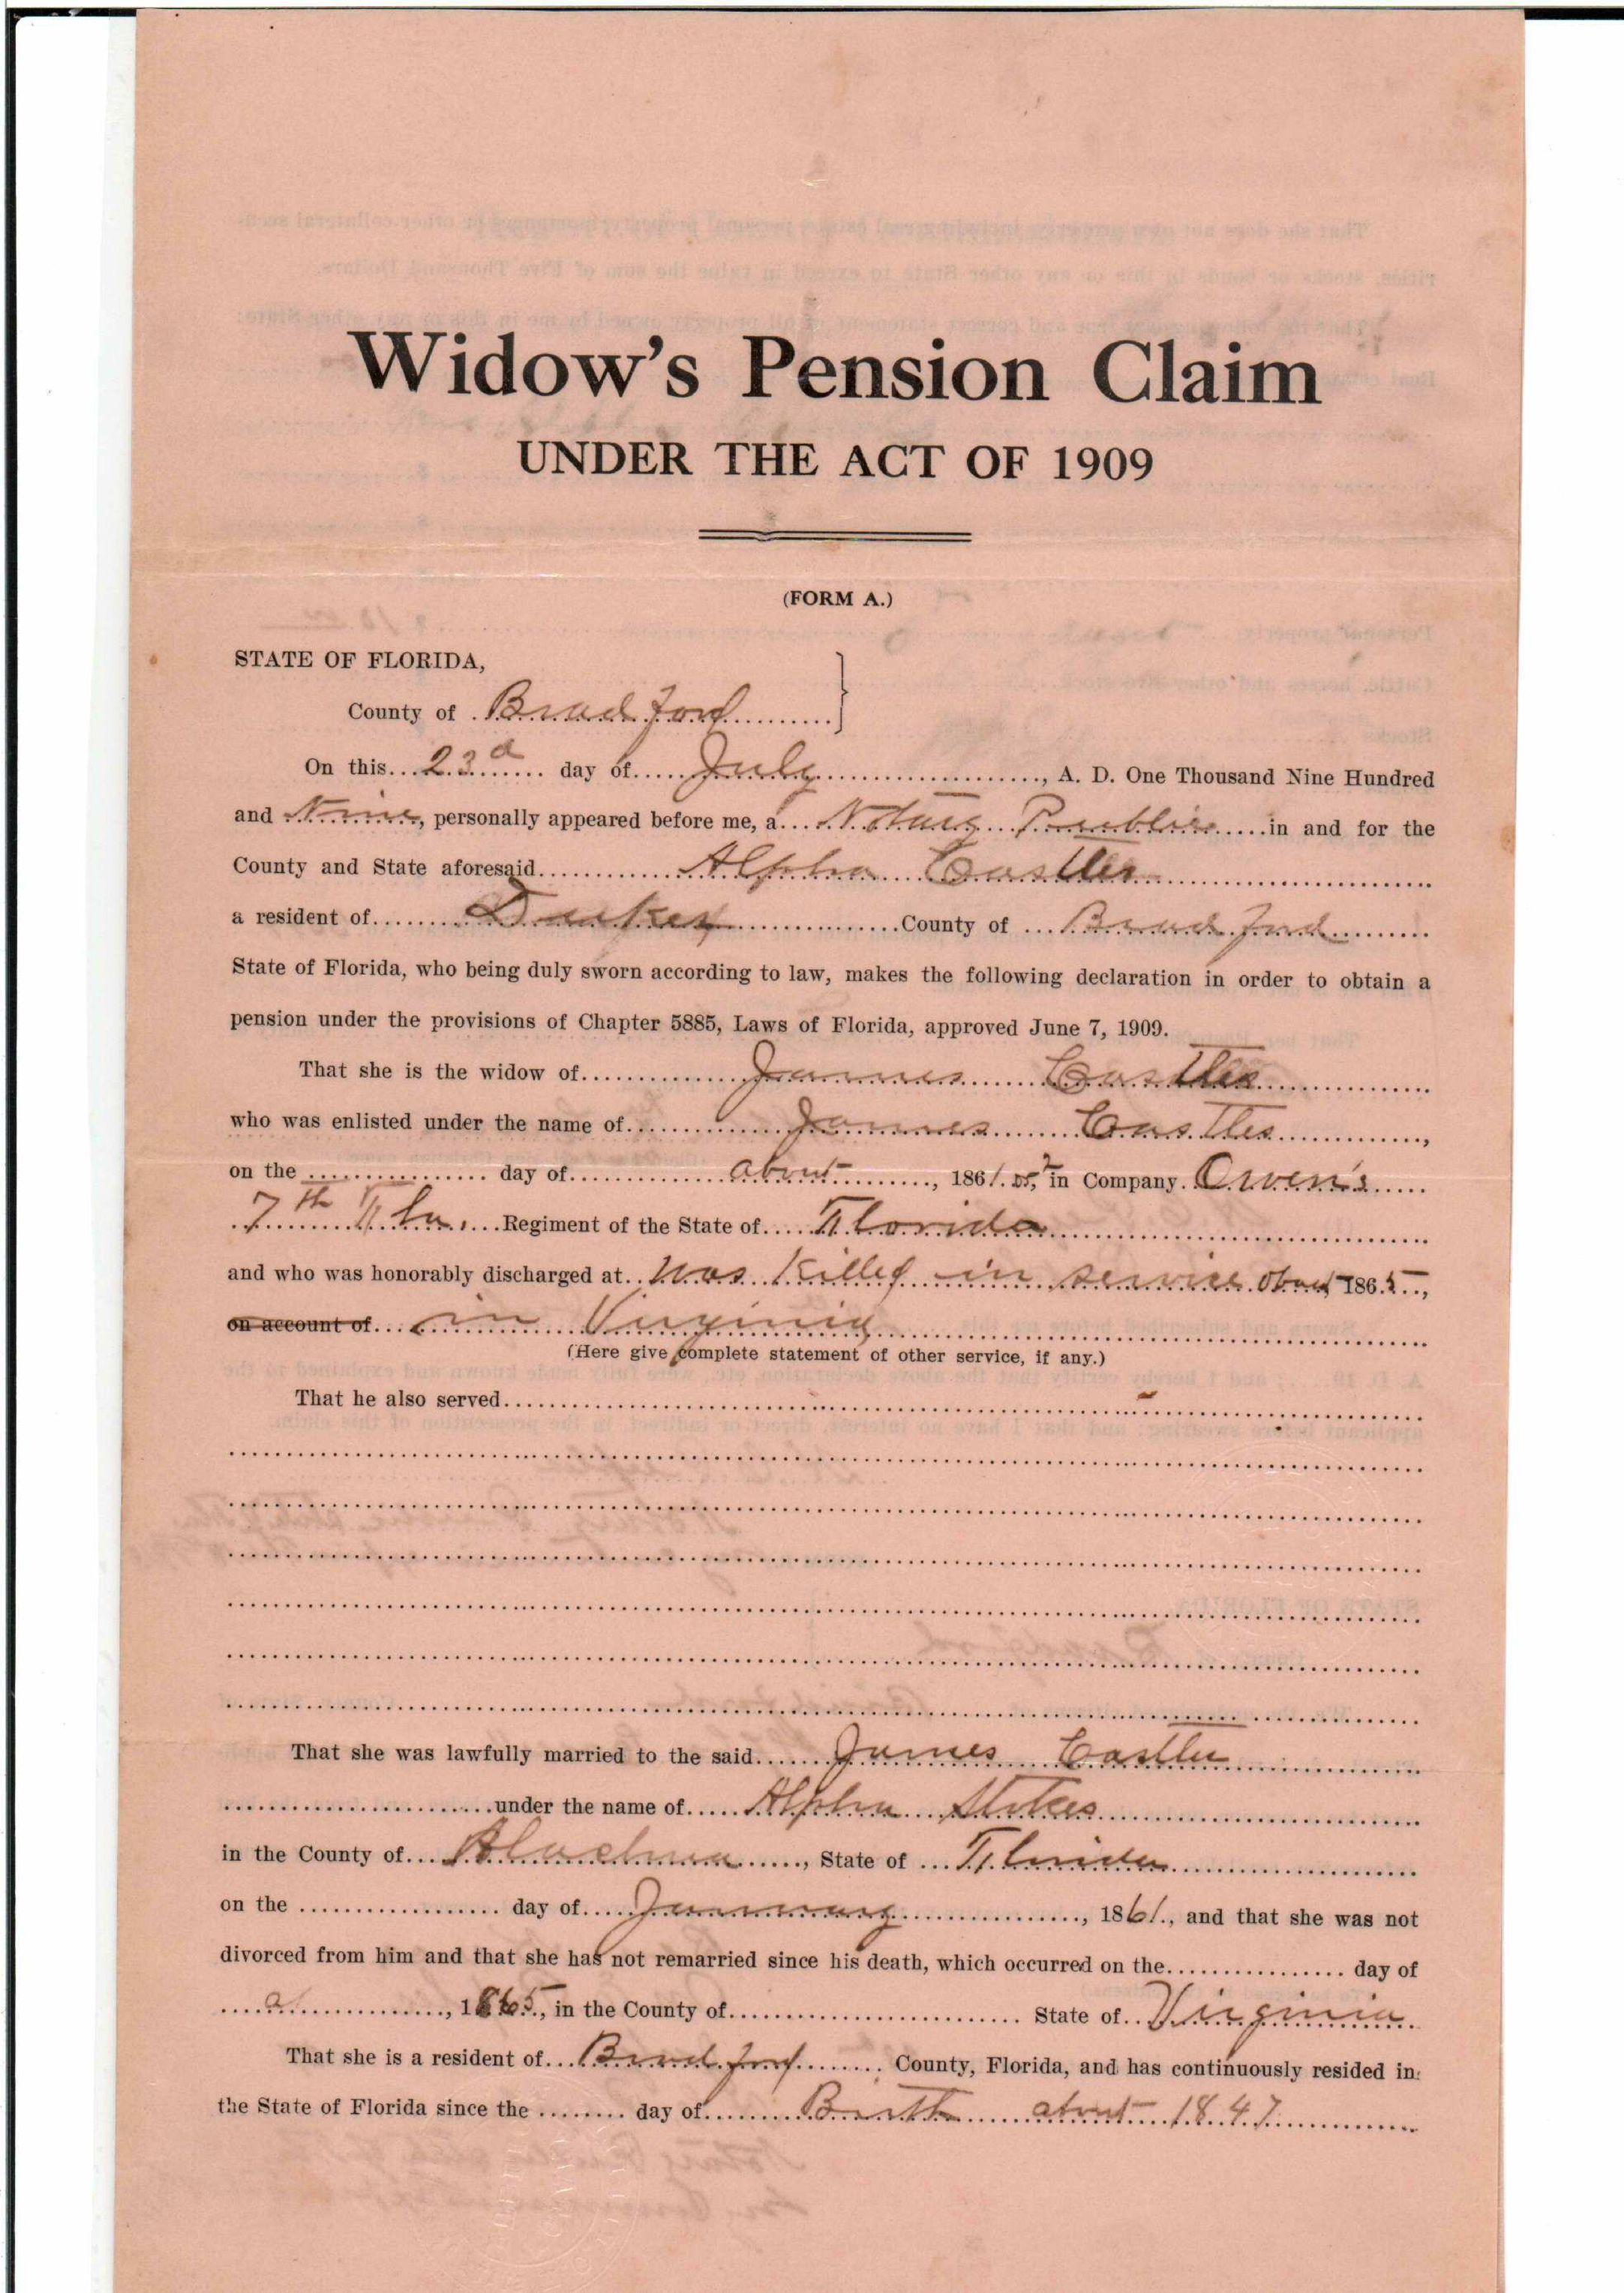 Widow's Pension Claim
UNDER THE ACT OF 1909
(FORM A.)
STATE OF FLORIDA,
County of Bradford
On this 23d day of July, A. D. One Thousand Nine Hundred
and Nine, personally appeared before me, a Notary Public in and for the
County and State aforesaid Alpha Castles
a resident of Dukes County of Bradford
State of Florida, who being duly sworn according to law, makes the following declaration in order to obtain a
pension under the provisions of Chapter 5885, Laws of Florida, approved June 7, 1909.
That she is the widow of James Castles
who was enlisted under the name of James Castles,
on the day of about, 1861 or 2 in Company Owen's
7th Fla. Regiment of the State of Florida
and who was honorably discharged at was killed in service about 1865,
on account of in Virginia
(Here give complete statement of other service, if any.)
That he also served
That she was lawfully married to the said James Castles
under the name of Alpha Stokes
in the County of Alachua, State of Florida
on the day of January, 1861, and that she was not
divorced from him and that she has not remarried since his death, which occurred on the day of
, 1865, in the County of State of Virginia
That she is a resident of Bradford County, Florida, and has continuously resided in
the State of Florida since the day of Birth about 1847